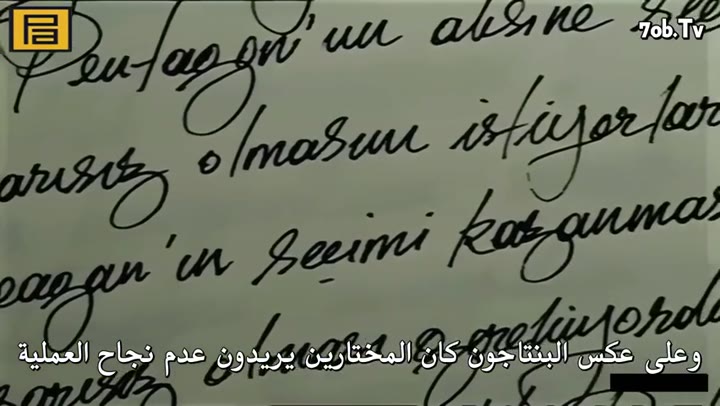 7ob.Tv
Pentagon'un aksine
arısız olmasını istiyorlar
eagan'ın seçimi kazanmas
arısız olması gerekiyordu
وعلى عكس البنتاجون كان المختارين يريدون عدم نجاح العملية